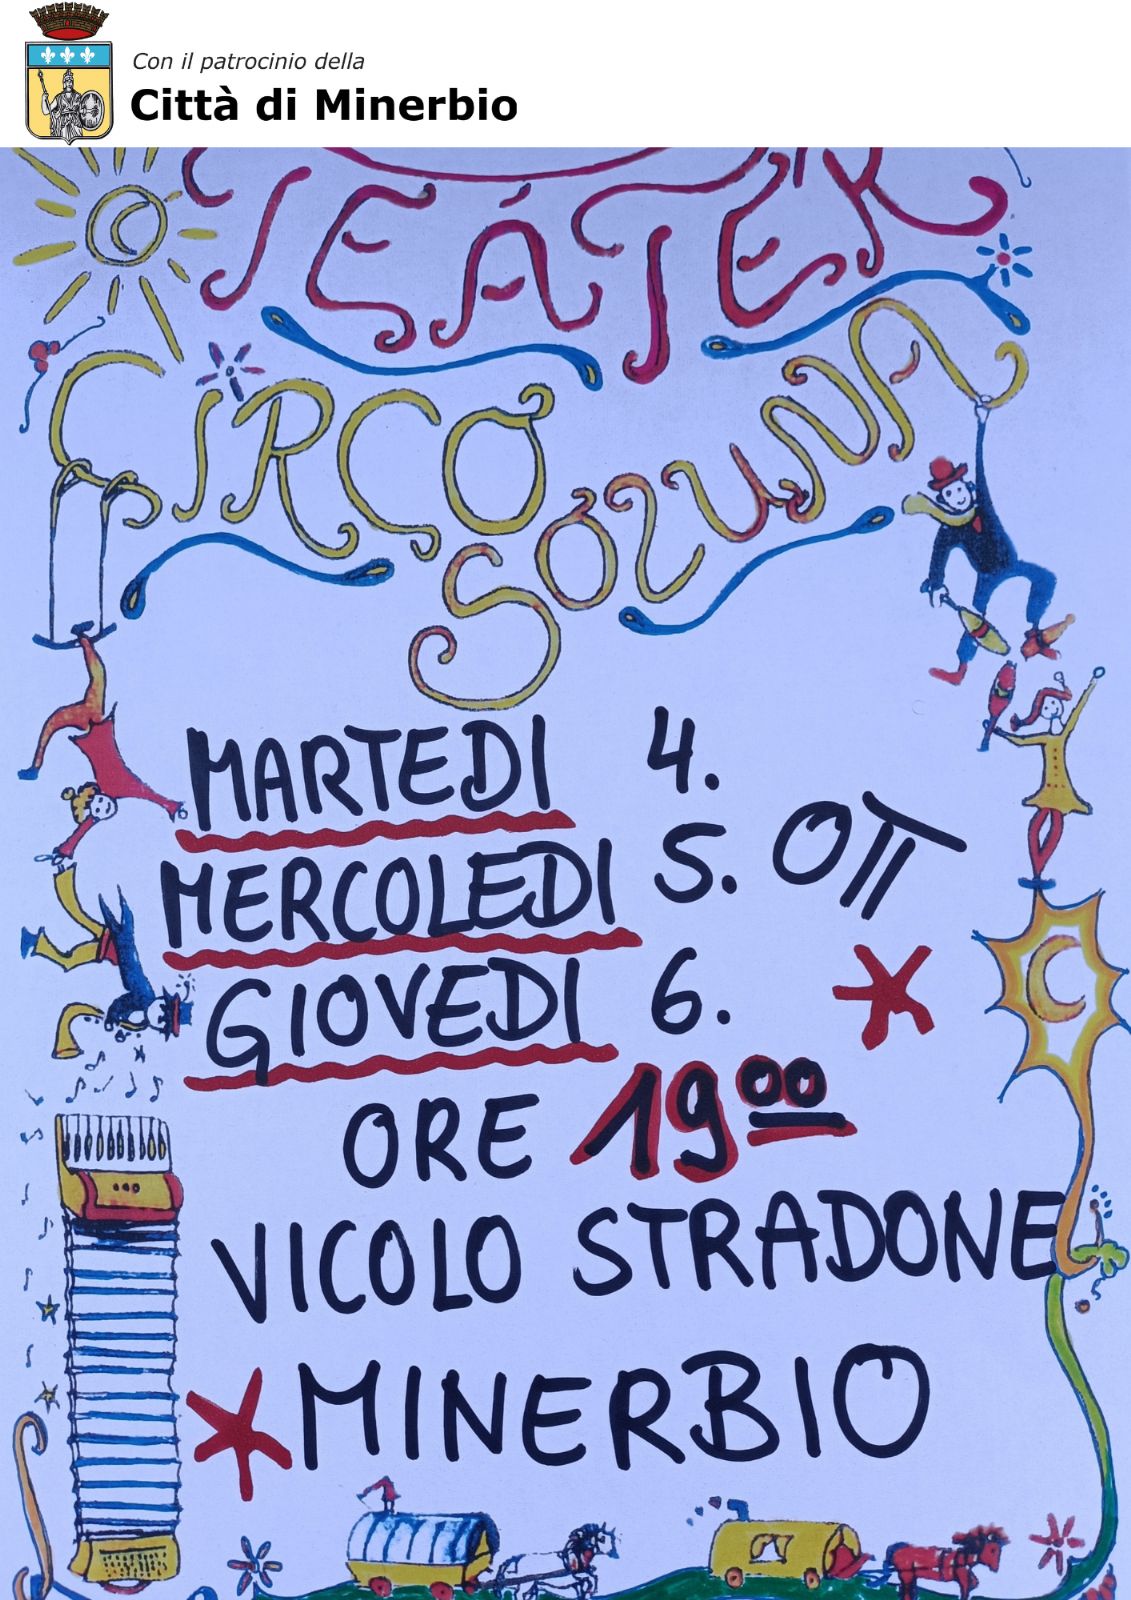 Con il patrocinio della
Città di Minerbio
TEATER
CIRCO
SOLUNA
MARTEDI 4.
MERCOLEDI 5. OTT
GIOVEDI 6.
ORE 1900
VICOLO STRADONE
MINERBIO